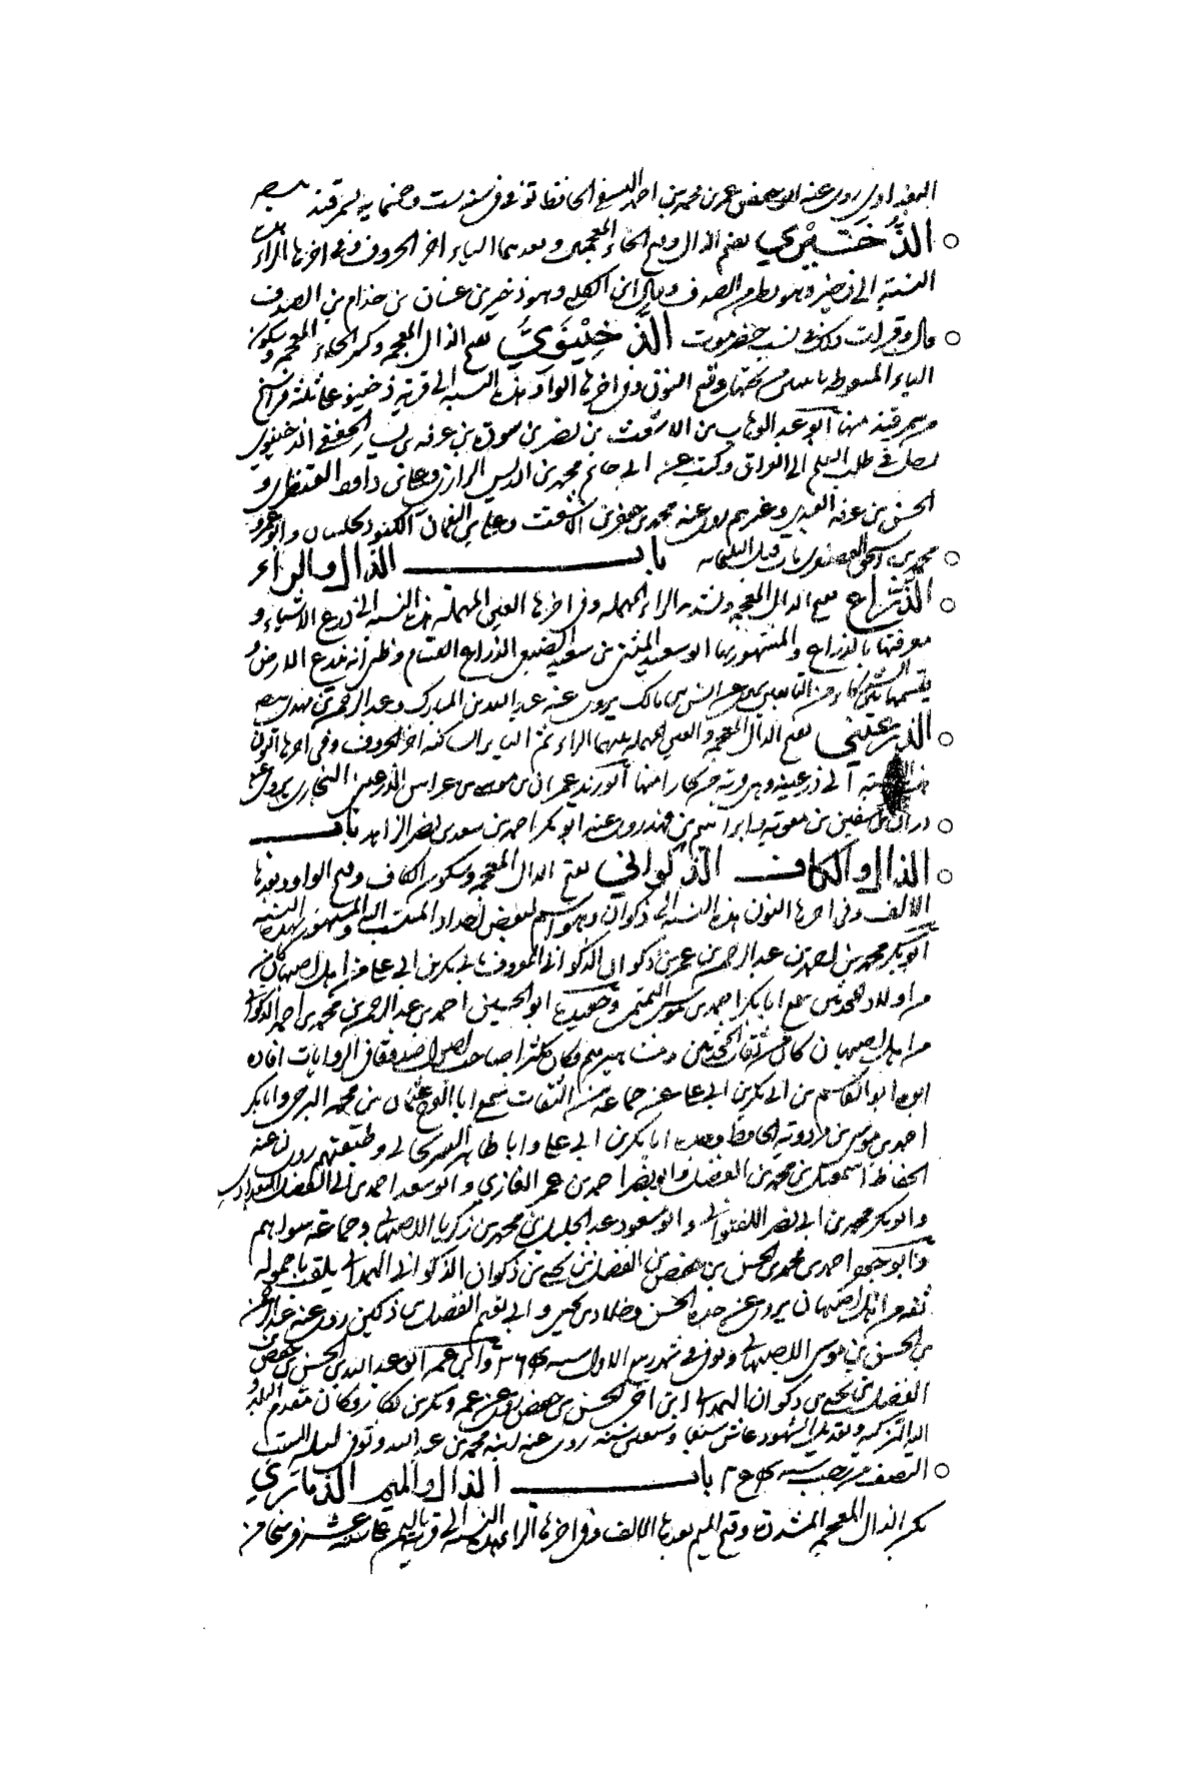 البغدادي روى عنه ابو حفص عمر بن محمد بن احمد النسفي الحافظ توفي في سنة ست وخمسمايه بسمرقند
الذُخَيْري بضم الذال وفتح الخاء المعجمتين وبعدهما الياء اخر الحروف وفي اخرها الراء هذه
النسبة الى ذخير وهو بطن من الصدف قال ابن الكلبي وهو ذخير بن غسان بن جذام بن الصدف
قال وقرات ذلك في نسب حضرموت الذَخِيْنَوِيُّ بفتح الذال المعجمه وكسر الخاء المعجمه وسكون
الياء المنقوطة باثنتين من تحتها وفتح النون وفي اخرها الواو هذه النسبه الى قرية ذخينوي على ثلثة فراسخ
من سمرقند منها ابو عبد الوهاب بن الاشعث بن نصر بن سورة بن عرفه بن يسار الحنفي الذخينوي
رحل في طلب العلم الى العراق وكتب عن ابي حاتم محمد بن ادريس الرازي وعلي بن داود القنطري و
الحسن بن عرفه العبدي وغيرهم روى عنه محمد بن جعفر بن الاشعث وعلي بن النعمان الكبوذنجكثيان وابو عمرو
محمد بن اسحق العصفري مات قبل الثلثمايه باب الذال والراء
الذَّرّاع بفتح الذال المعجمه وتشديد الراء المهمله وفي اخرها العين المهملة هذه النسبه الى ذرع الاشياء و
معرفتها بالذراع والمشهور بها ابو سعيد المثنى بن سعيد الضبعي الذراع القسام وظني انه يذرع الارض و
يقسمها بين الشركاء من التابعين يروي عن انس بن مالك يروى عنه عبد الله بن المبارك وعبد الرحمن بن مهدي
الذرعيني بفتح الذال المعجمه والعين المهمله بينهما الراء ثم الياء الساكنه اخر الحروف وفي اخرها النون
هذه النسبة الى ذرعينه وهي قرية من بخارا منها ابو زيد عمران بن موسى بن غرامش الذرعيني البخاري يروي عن
سفين بن معوية وابراهيم بن فهد روى عنه ابو بكر احمد بن سعد بن نصر الزاهد باب
الذال والكاف الذكواني بفتح الذال المعجمه وسكون الكاف وفتح الواو وبعدها
الالف وفي اخرها النون هذه النسبه الى ذكوان وهو اسم لبعض اجداد المنتسب اليه والمشهور بهذه النسبه
ابو بكر محمد بن احمد بن عبد الرحمن بن عمر بن ذكوان الذكواني المعروف بابي بكر بن ابي علي من اهل اصبهان كان
من اولاد المحدثين سمع ابا بكر احمد بن موسى التيمي وحفيده ابو الحسين احمد بن عبد الرحمن بن محمد بن احمد الذكواني
من اهل اصبهان كان من ثقات المحدثين ومشاهيرهم وكان مكثرا صاحب اصول صدوقا في الروايات افاده
ابوه ابو القسم بن ابي بكر بن ابي علي عن جماعة من الثقات سمع ابا الفرج عثمان بن محمد البرجي وابا بكر
احمد بن موسى بن مردوية الحافظ وجده ابا بكر بن ابي علي وابا طاهر السرنجاني وطبقتهم روى عنه
الحفاظ اسمعيل بن محمد بن الفضل وابو نصر احمد بن عمر الغازي وابو سعد احمد بن ابي الفضل البغدادي
وابو بكر محمد بن ابي نصر اللفتواني وابو مسعود عبد الجليل بن محمد بن زكريا الاصبهاني وجماعة سواهم
وابو جعفر احمد بن محمد بن الحسن بن حفص بن الفضل بن يحيى بن ذكوان الذكواني الهمداني يلقب باحموله
ثقه من اهل اصبهان يروي عن جده الحسن وخلاد بن يحيى وابي نعيم الفضل بن ذكين روى عنه عبد الرحمن
بن الحسن بن موسى الاصبهاني وتوفي في شهر ربيع الاول سنه ٢٦٣ وابن عمه ابو عبد الله بن الحسن بن حفص بن
الفضل بن يحيى بن ذكوان الهمداني ابن اخي الحسين بن حفص يروي عن عمه وبكر بن بكار وكان مقدم البلد و
اليه التزكيه وتعديل الشهود عاش سبعا وسبعين سنه روى عنه ابنه محمد بن عبد الله وتوفي ليله السبت
النصف من رجب سنه باب الذال والميم الذماري
بكسر الذال المعجمه المشدده وفتح الميم بعدها الالف وفي اخرها الراء هذه النسبه الى قرية باليمن على ستة عشر فرسخا من